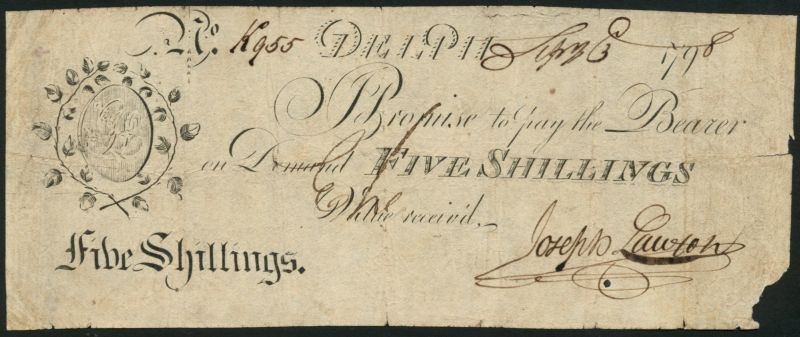 No. K955 DELPH 1798
I Promise to pay the Bearer
on Demand FIVE SHILLINGS
Value receivd.
Five Shillings.
Joseph Lawton